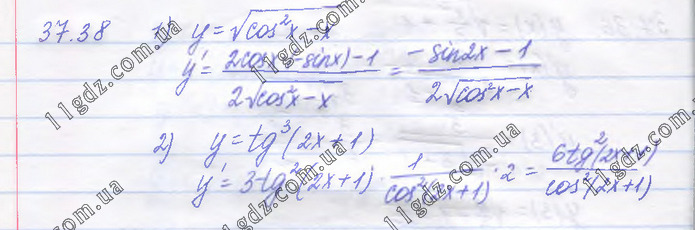 37.38 1) y = √(cos²x − x)
y' = (2cosx(−sinx) − 1) / (2√(cos²x − x)) = (−sin2x − 1) / (2√(cos²x − x))
2) y = tg³(2x + 1)
y' = 3tg²(2x+1) · 1 / cos²(2x+1) · 2 = 6tg²(2x+1) / cos²(2x+1)
11gdz.com.ua
11gdz.com.ua
11gdz.com.ua
11gdz.com.ua
11gdz.com.ua
11gdz.com.ua